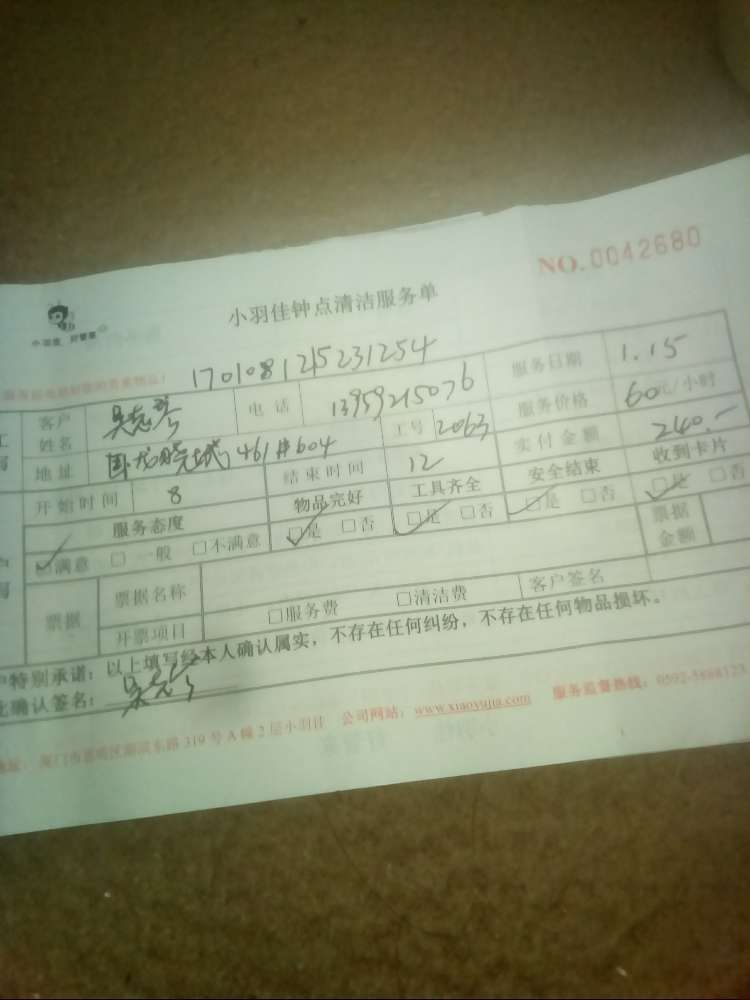 NO.0042680
小羽佳钟点清洁服务单
小羽佳 好管家
170108125231254
客户姓名 电话 13959215076 服务日期 1.15
地址 卧龙晓城461#604 工号 2063 服务价格 60元/小时
开始时间 8 结束时间 12 实付金额 240.-
服务态度 物品完好 工具齐全 安全结束 收到卡片
☑满意 □一般 □不满意 ☑是 □否 ☑是 □否 ☑是 □否 ☑是 □否
票据 票据名称 票据金额
开票项目 □服务费 □清洁费 客户签名
户特别承诺:以上填写经本人确认属实,不存在任何纠纷,不存在任何物品损坏。
此确认签名:
地址: 厦门市思明区湖滨东路319号A幢2层小羽佳 公司网站:www.xiaoyujia.com 服务监督热线:0592-5888123